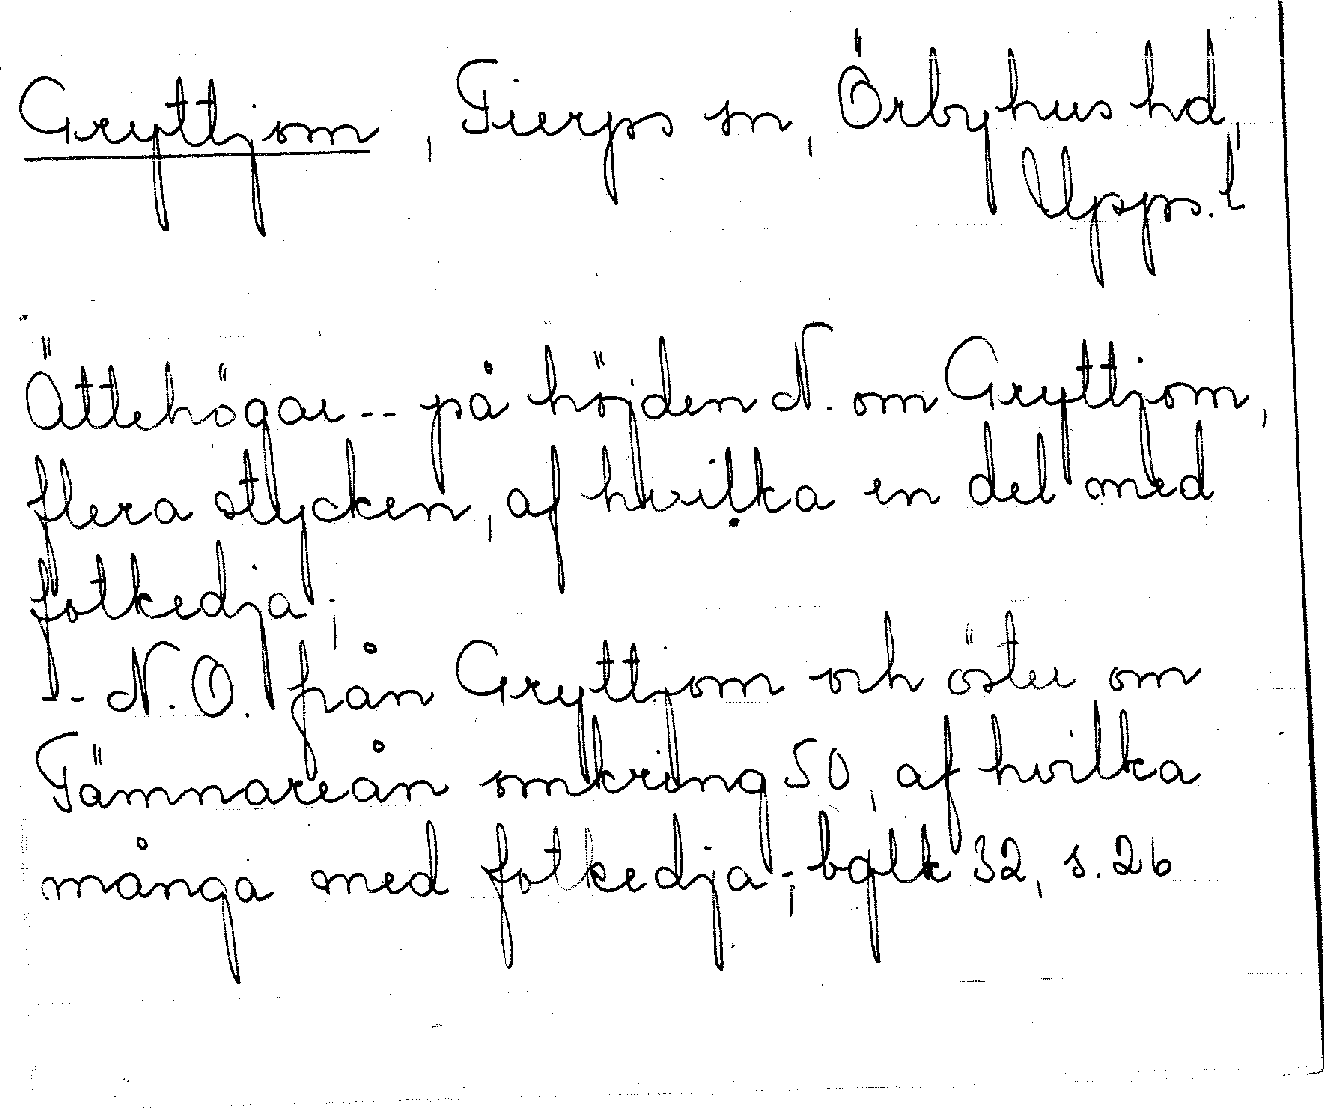 Gryttjom, Tierps sn, Örbyhus hd,
Upps. l
Ättehögar -- på höjden N. om Gryttjom,
flera stycken, af hvilka en del med
fotkedja;
-- N. O. från Gryttjom och öster om
Tämnareån omkring 50, af hvilka
många med fotkedja; bglk 32, s. 26